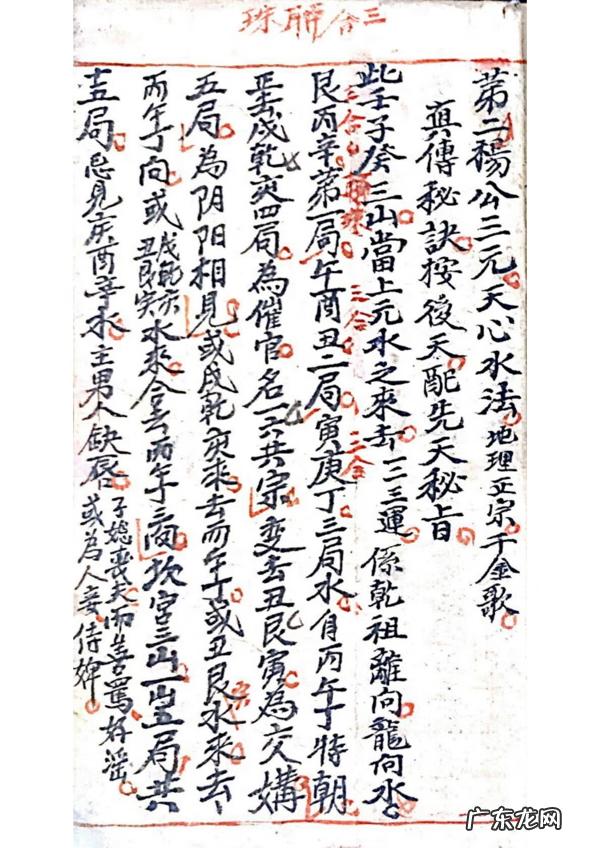 三合聯珠
第二楊公三元天心水法地理正宗千金歌
真傳秘訣按後天配先天秘旨
此壬子癸三山當上元水之來去一二三運係乾祖離向龍向水
三合聯珠 三合 三合
艮丙辛第一局午酉丑二局寅庚丁三局水自丙午丁特朝
正去戌乾亥四局為催官名一六共宗变去丑艮寅為交媾
五局為阴阳相見或戌乾亥來去而午丁或丑艮水來去
丙午丁向或戌乾亥丑艮寅水來合去丙午丁三向坎宮三山一山五局共
十五局忌見亥酉辛水主男人缺唇子媳喪夫而善罵好淫或為人妾侍婢
广东龙网